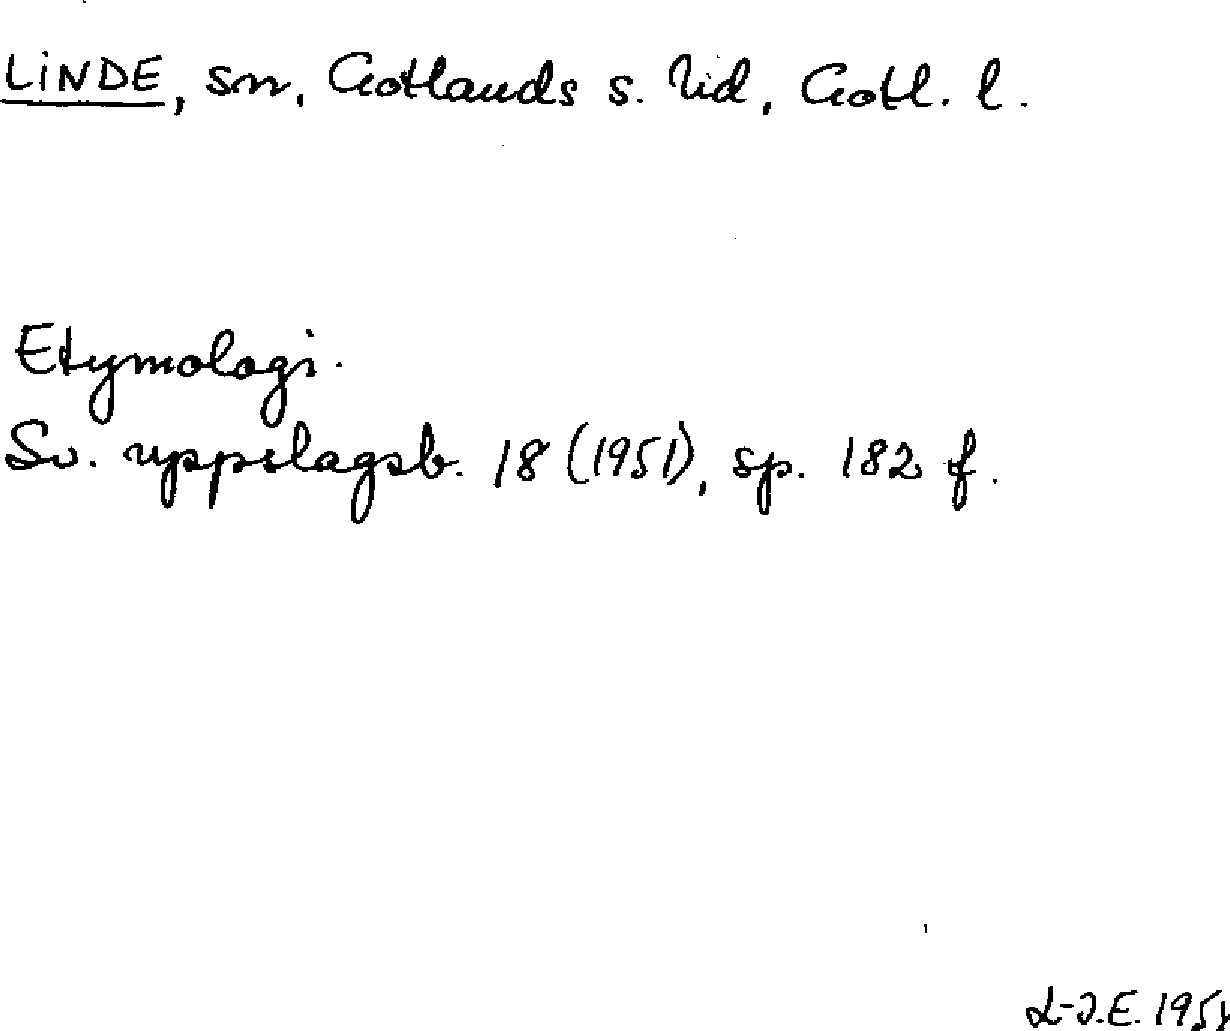 LINDE, sn, Gotlands s. hd, Gotl. l.
Etymologi.
Sv. uppslagsb. 18 (1951), sp. 182 f.
L-J.E. 1951